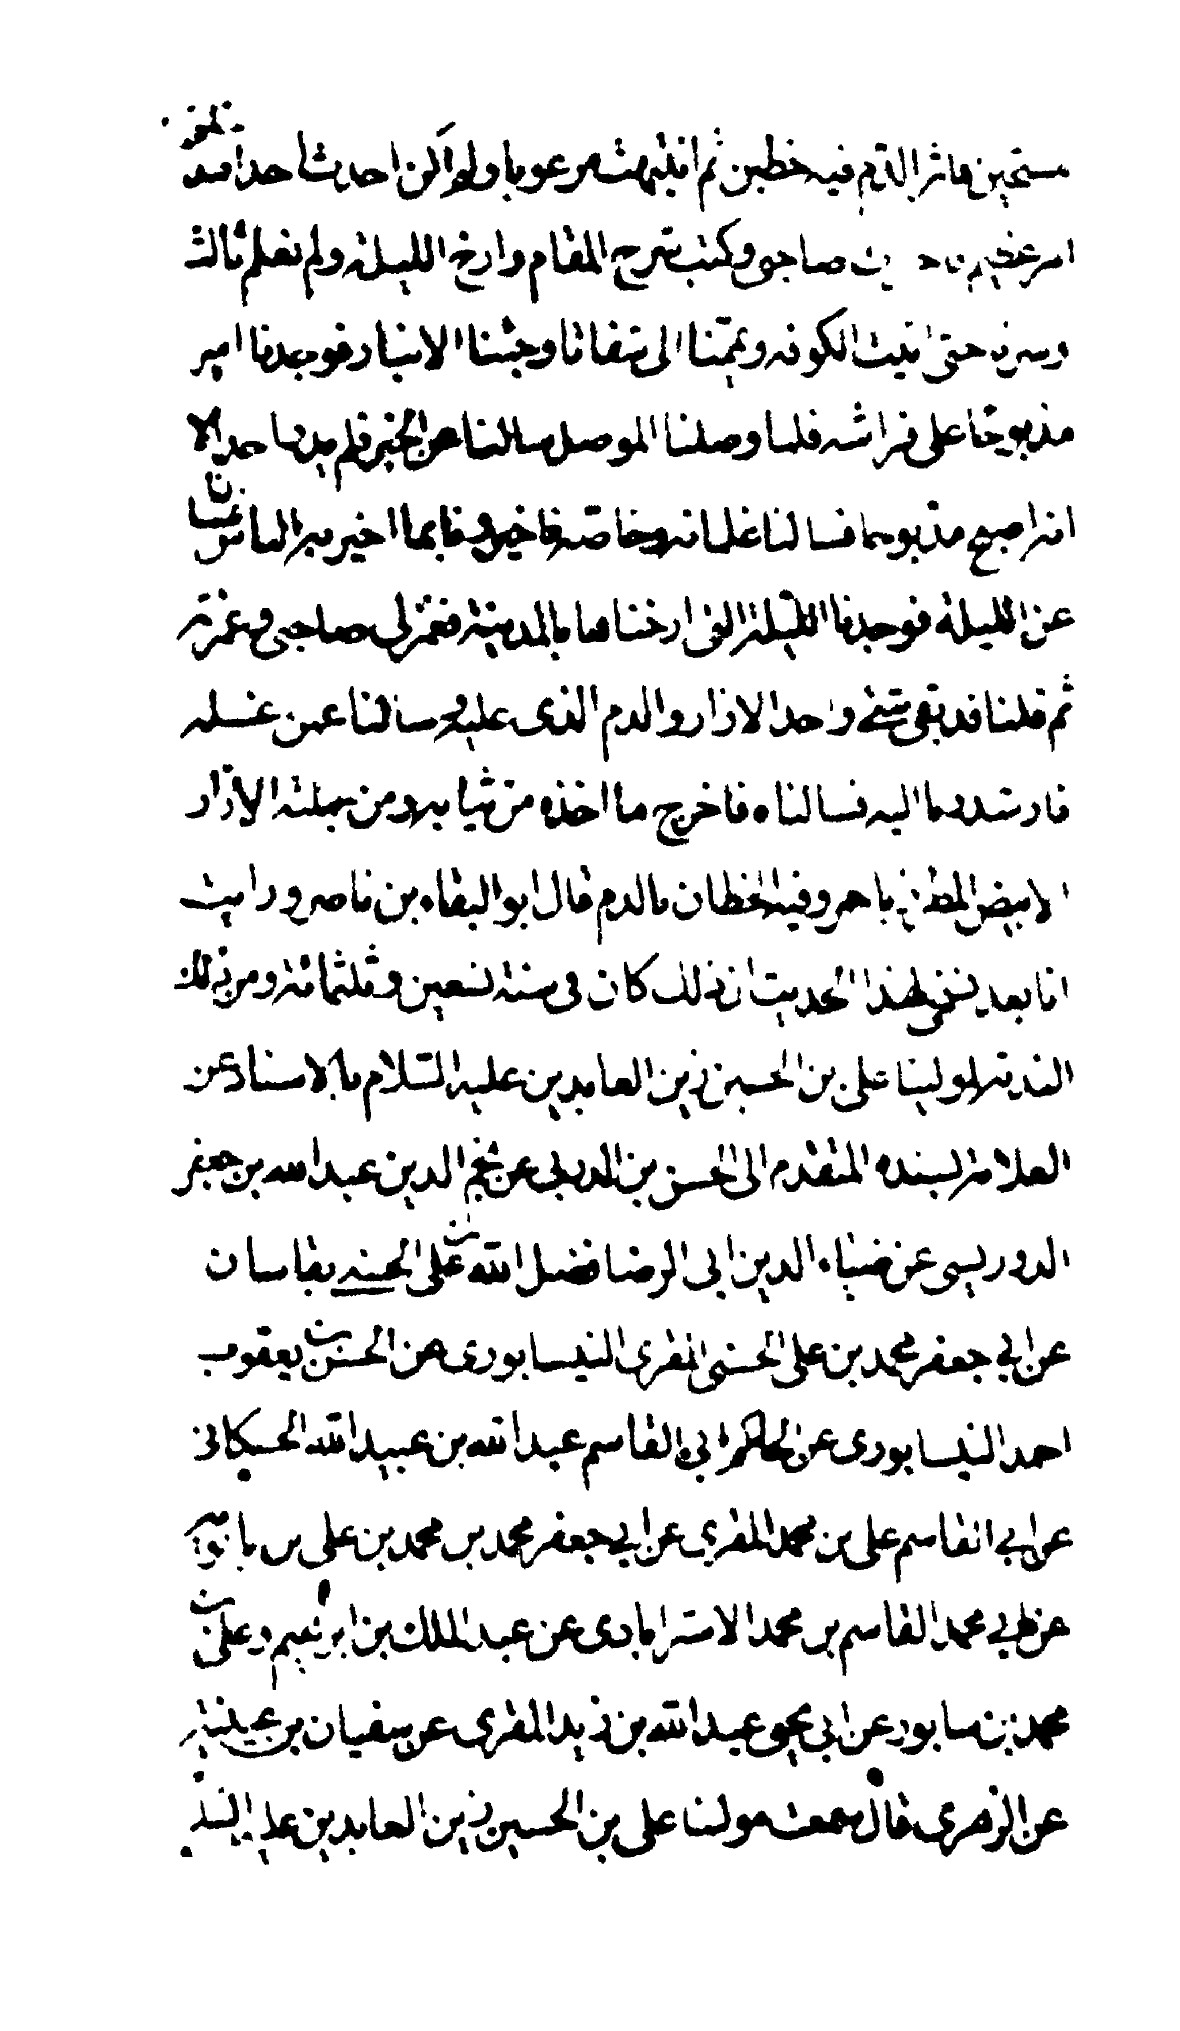 مستحين فاثر الدم فيه خطين ثم انتبهت مرعوبا ولم اكن احدث احدا فقد لحقنى
امر عظيم صاحبى وكتب شرح المقام وارخ الليلة ولم نعلم ثالث
وسرنا حتى اتيت الكوفة ويممنا الى شفاثا وجئنا الانبار فوجدنا امير
مذبوحا على فراشه فلما وصلنا الموصل سالنا عن الخبر فلم يدر احد الا
انه اصبح مذبوحا فسالنا غلمانه وخاصته فاخبروا بما اخبر به الناس
عن الليلة فوجدنا الليلة التى ارخناها بالمدينة فغمزنى صاحبى وغمزته
ثم قلنا قد بقى شىء واحد الازار والدم الذى عليه وسالنا عمن غسله
فارشدنا اليه فسالناه فاخرج ما اخذه من ثيابه ومن جملته الازار
الابيض باحمر وفيه الخطان بالدم قال ابو البقاء بن ناصر ورايت
انا بعد نسخى لهذا الحديث ان ذلك كان فى سنة تسعين وثلثمائة ومن ذلك
الندبة لمولينا على بن الحسين زين العابدين عليه السلام بالاسناد عن
العلامة بسنده المتقدم الى الحسن بن الدربى عن نجم الدين عبد الله بن جعفر
الدوريسى عن ضياء الدين ابى الرضا فضل الله بن على الحسنى بقاسان
عن ابى جعفر محمد بن على الحسنى المقرى النيسابورى عن الحسن بن يعقوب
احمد النيسابورى عن الحاكم ابى القاسم عبد الله بن عبيد الله الحسكانى
عن ابى القاسم على بن محمد المقرى عن ابى جعفر محمد بن محمد بن على بن بابويه
عن ابى محمد القاسم بن محمد الاسترابادى عن عبد الملك بن ابرهيم وعلى بن
محمد بن سابور عن ابى يحيى عبد الله بن زيد المقرى عن سفيان بن عيينة
عن الزهرى قال سمعت مولنا على بن الحسين زين العابدين عليه السلم